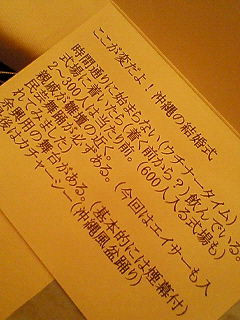 ここが変だよ！沖縄の結婚式
時間通りに始まらない（ウチナータイム）
式場に着いたら（着く前から？）飲んでいる。
２〜３００人は当たり前。（６００人入る式場も）
親戚が雛壇の近く。
民謡舞踊が必ずある。（今回はエイサーも入
れてみました）
余興用の舞台がある。（基本的には煙幕付）
最後はカチャーシー（沖縄風盆踊り）